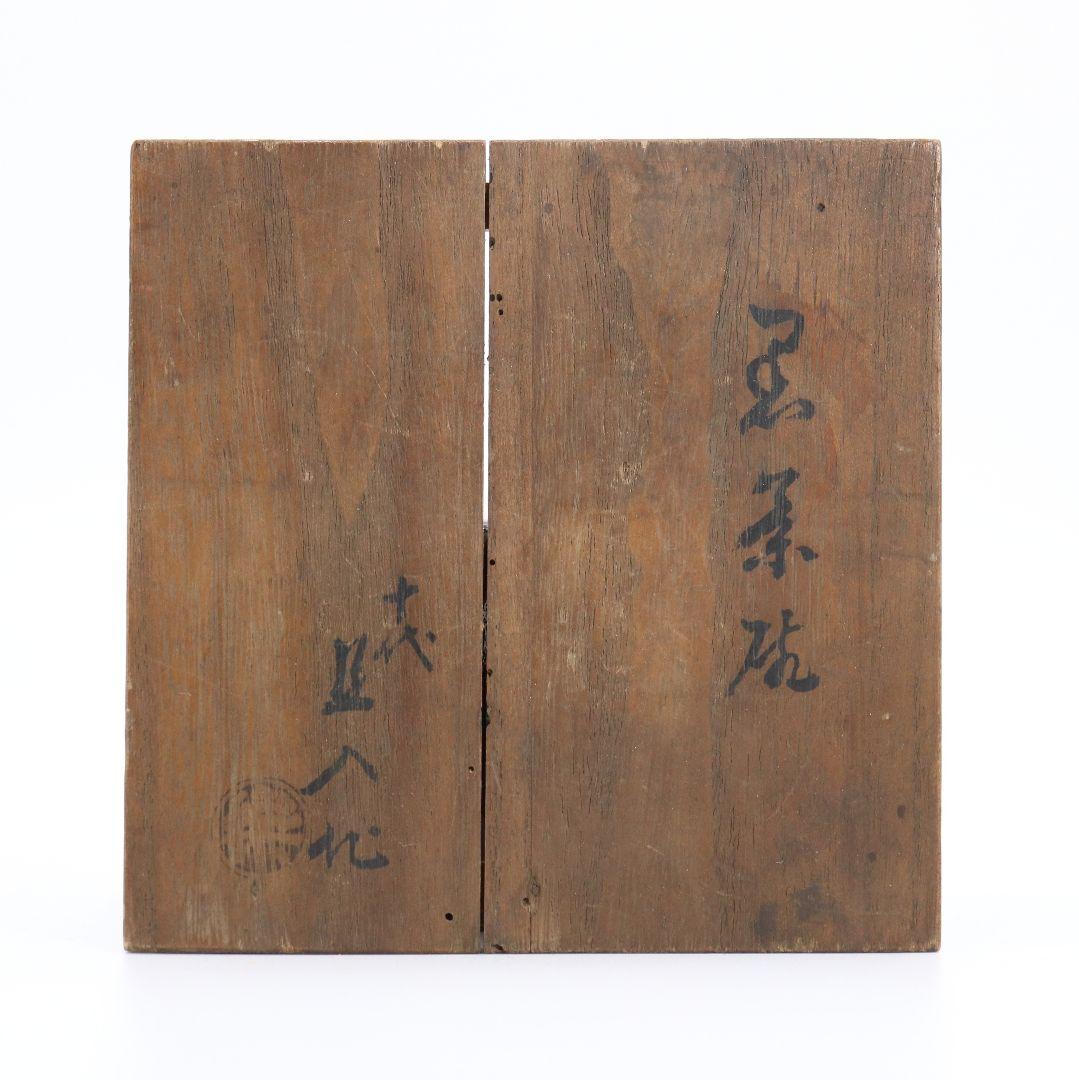 黒茶碗
十代
旦入作